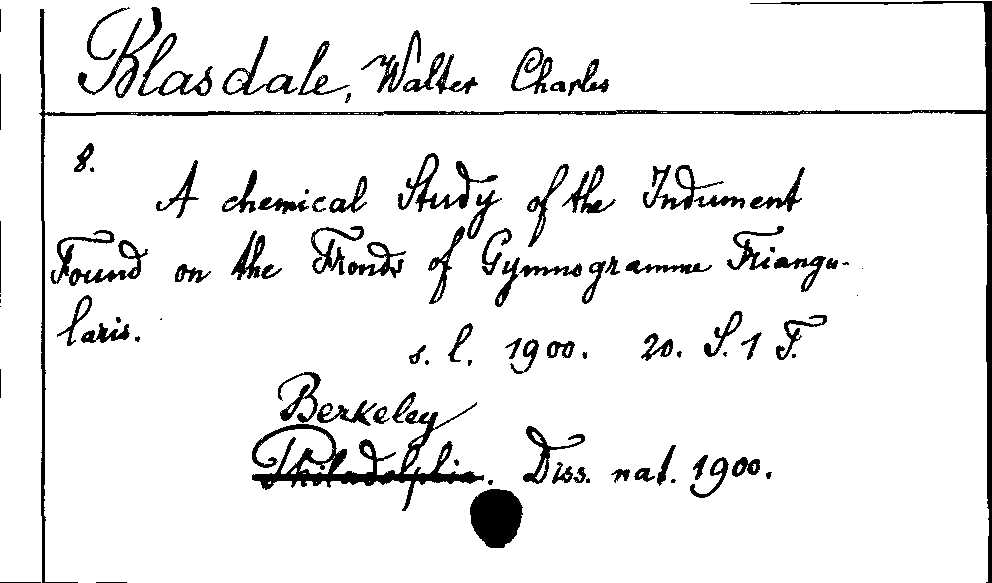 Blasdale, Walter Charles
8.
A chemical Study of the Indument
Found on the Fronds of Gymnogramme Triangu-
laris.
s. l. 1900. 20. S. 1 T.
Berkeley
Philadelphia. Diss. nat. 1900.